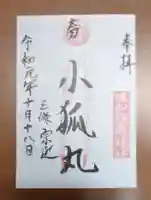 奉拝
小狐丸
三條宗近
令和元年十月十八日